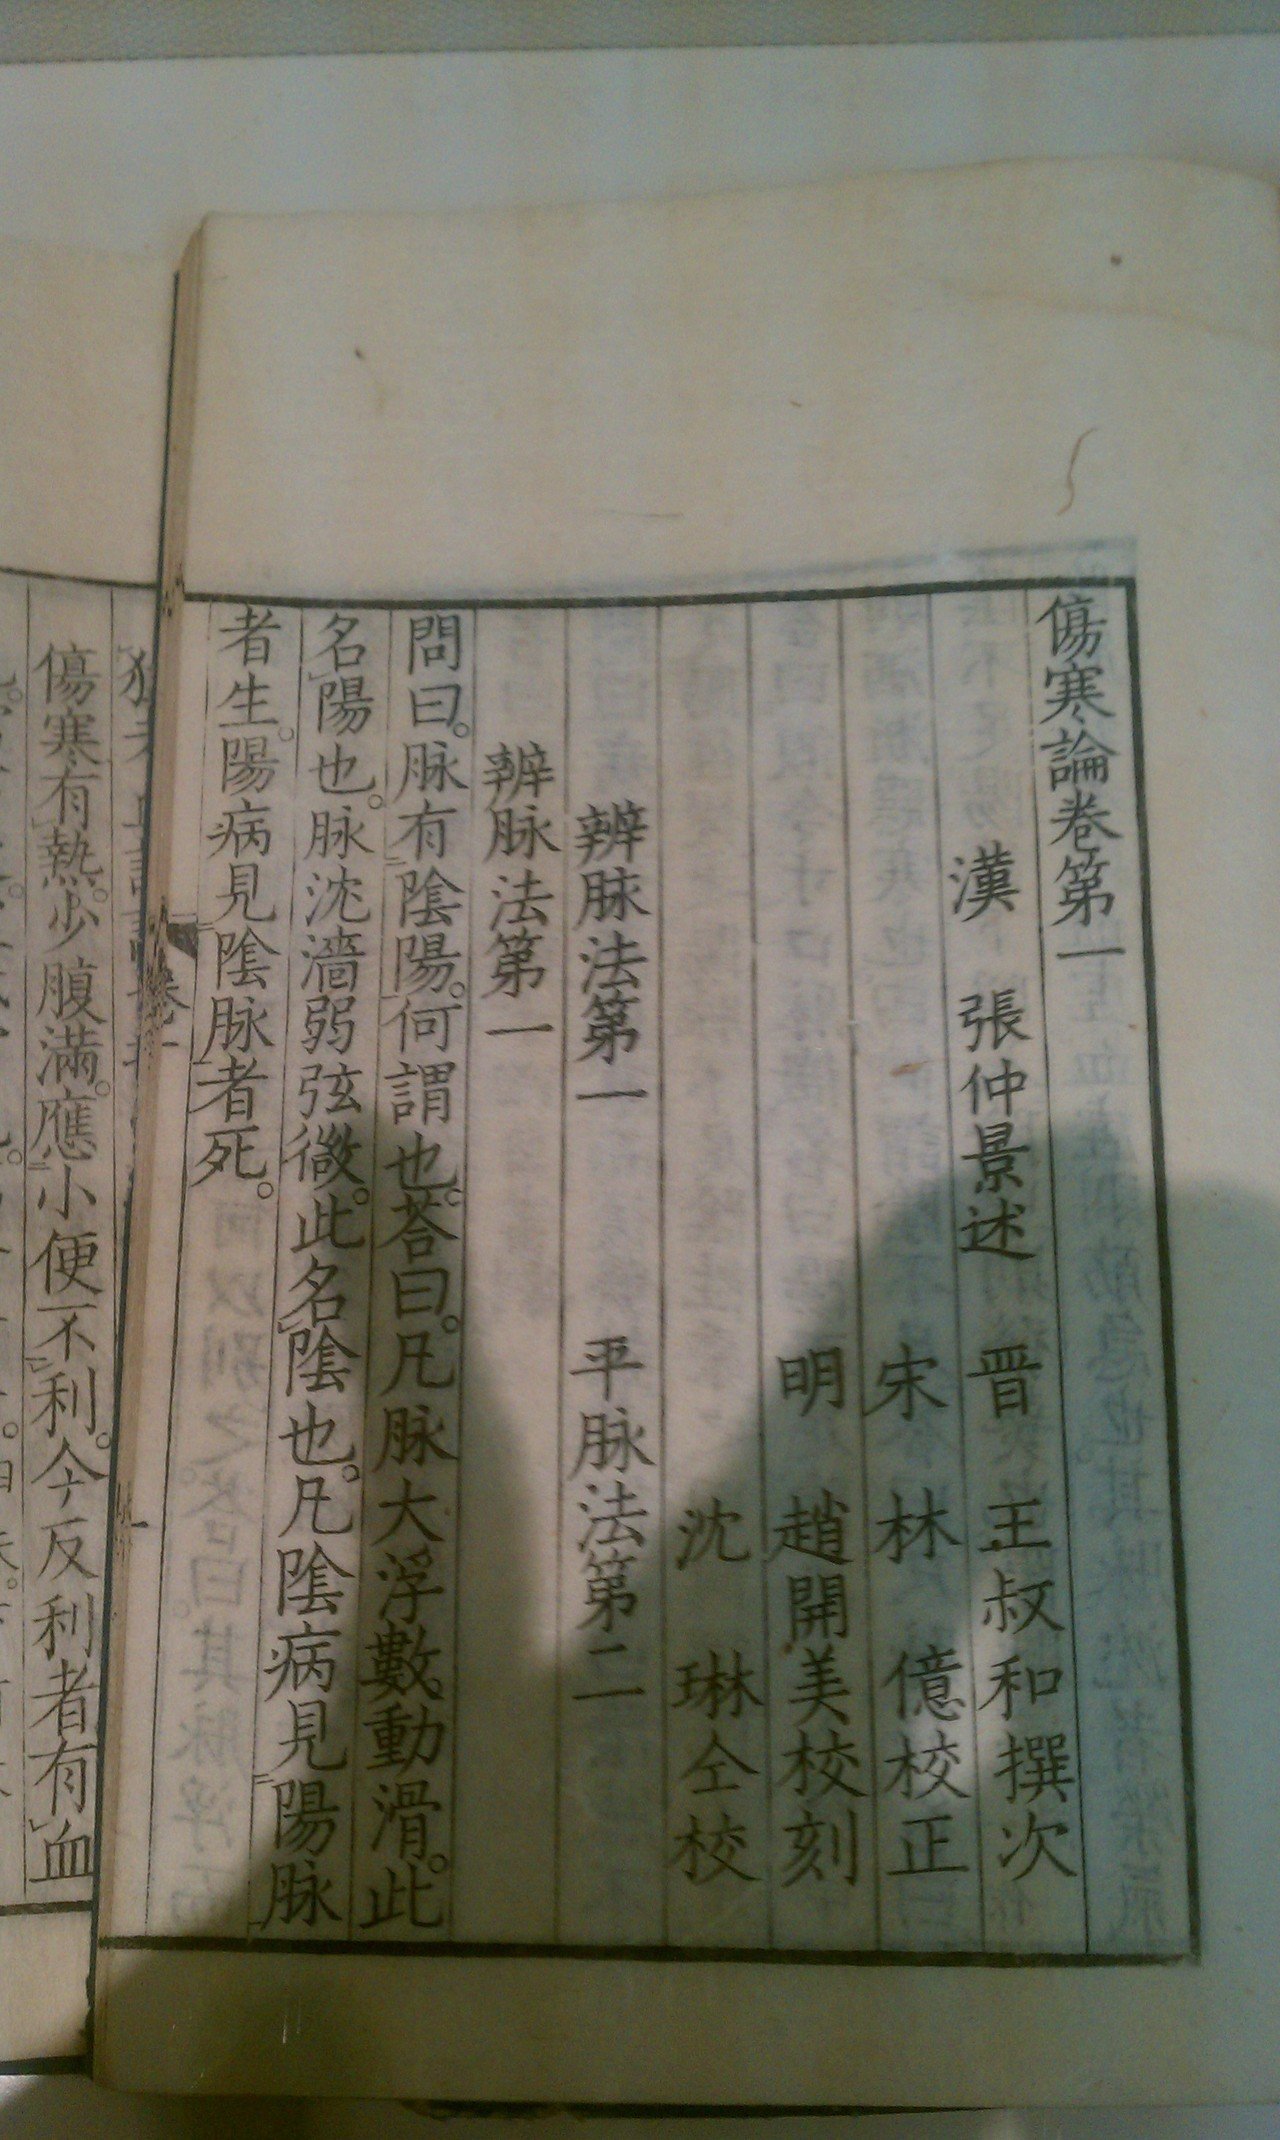 傷寒論卷第一
漢　張仲景述　晋　王叔和撰次
宋　林　億校正
明　趙開美校刻
沈　琳仝校
辨脉法第一　平脉法第二
辨脉法第一
問曰。脉有陰陽。何謂也。荅曰。凡脉大浮數動滑。此
名陽也。脉沈濇弱弦微。此名陰也。凡陰病見陽脉
者生。陽病見陰脉者死。
傷寒有熱。少腹滿。應小便不利。今反利者有血